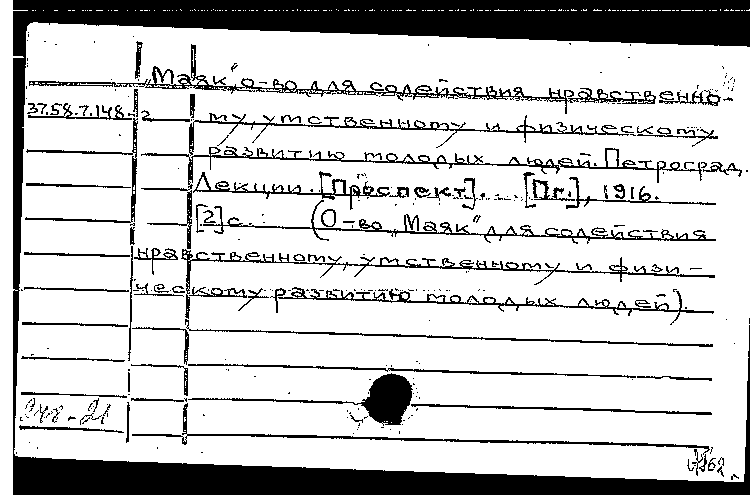 „Маяк", о-во для содействия нравственно-
37.58.7.148. 2 му, умственному и физическому
развитию молодых людей. Петроград.
Лекции. [Проспект]. ... [Пг.], 1916.
[2]с. (О-во „Маяк" для содействия
нравственному, умственному и физи-
ческому развитию молодых людей).
248-21